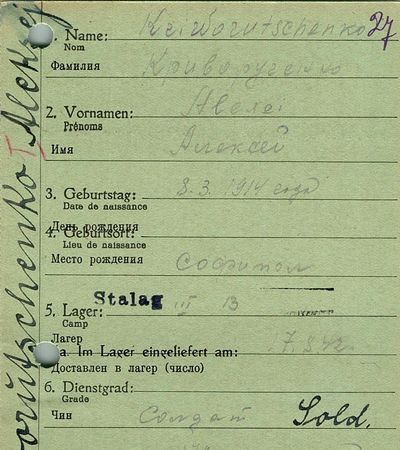 1. Name: Kriworutschenko 27
Nom
Фамилия Криворученко
2. Vornamen:
Prénoms
Имя Алексей
3. Geburtstag: 8. 3. 1914 года
Date de naissance
День рождения
4. Geburtsort:
Lieu de naissance
Место рождения
5. Lager: Stalag III B
Camp
Лагер
5a. Im Lager eingeliefert am:
Доставлен в лагер (число)
6. Dienstgrad:
Grade
Чин Солдат Sold.
Alexej